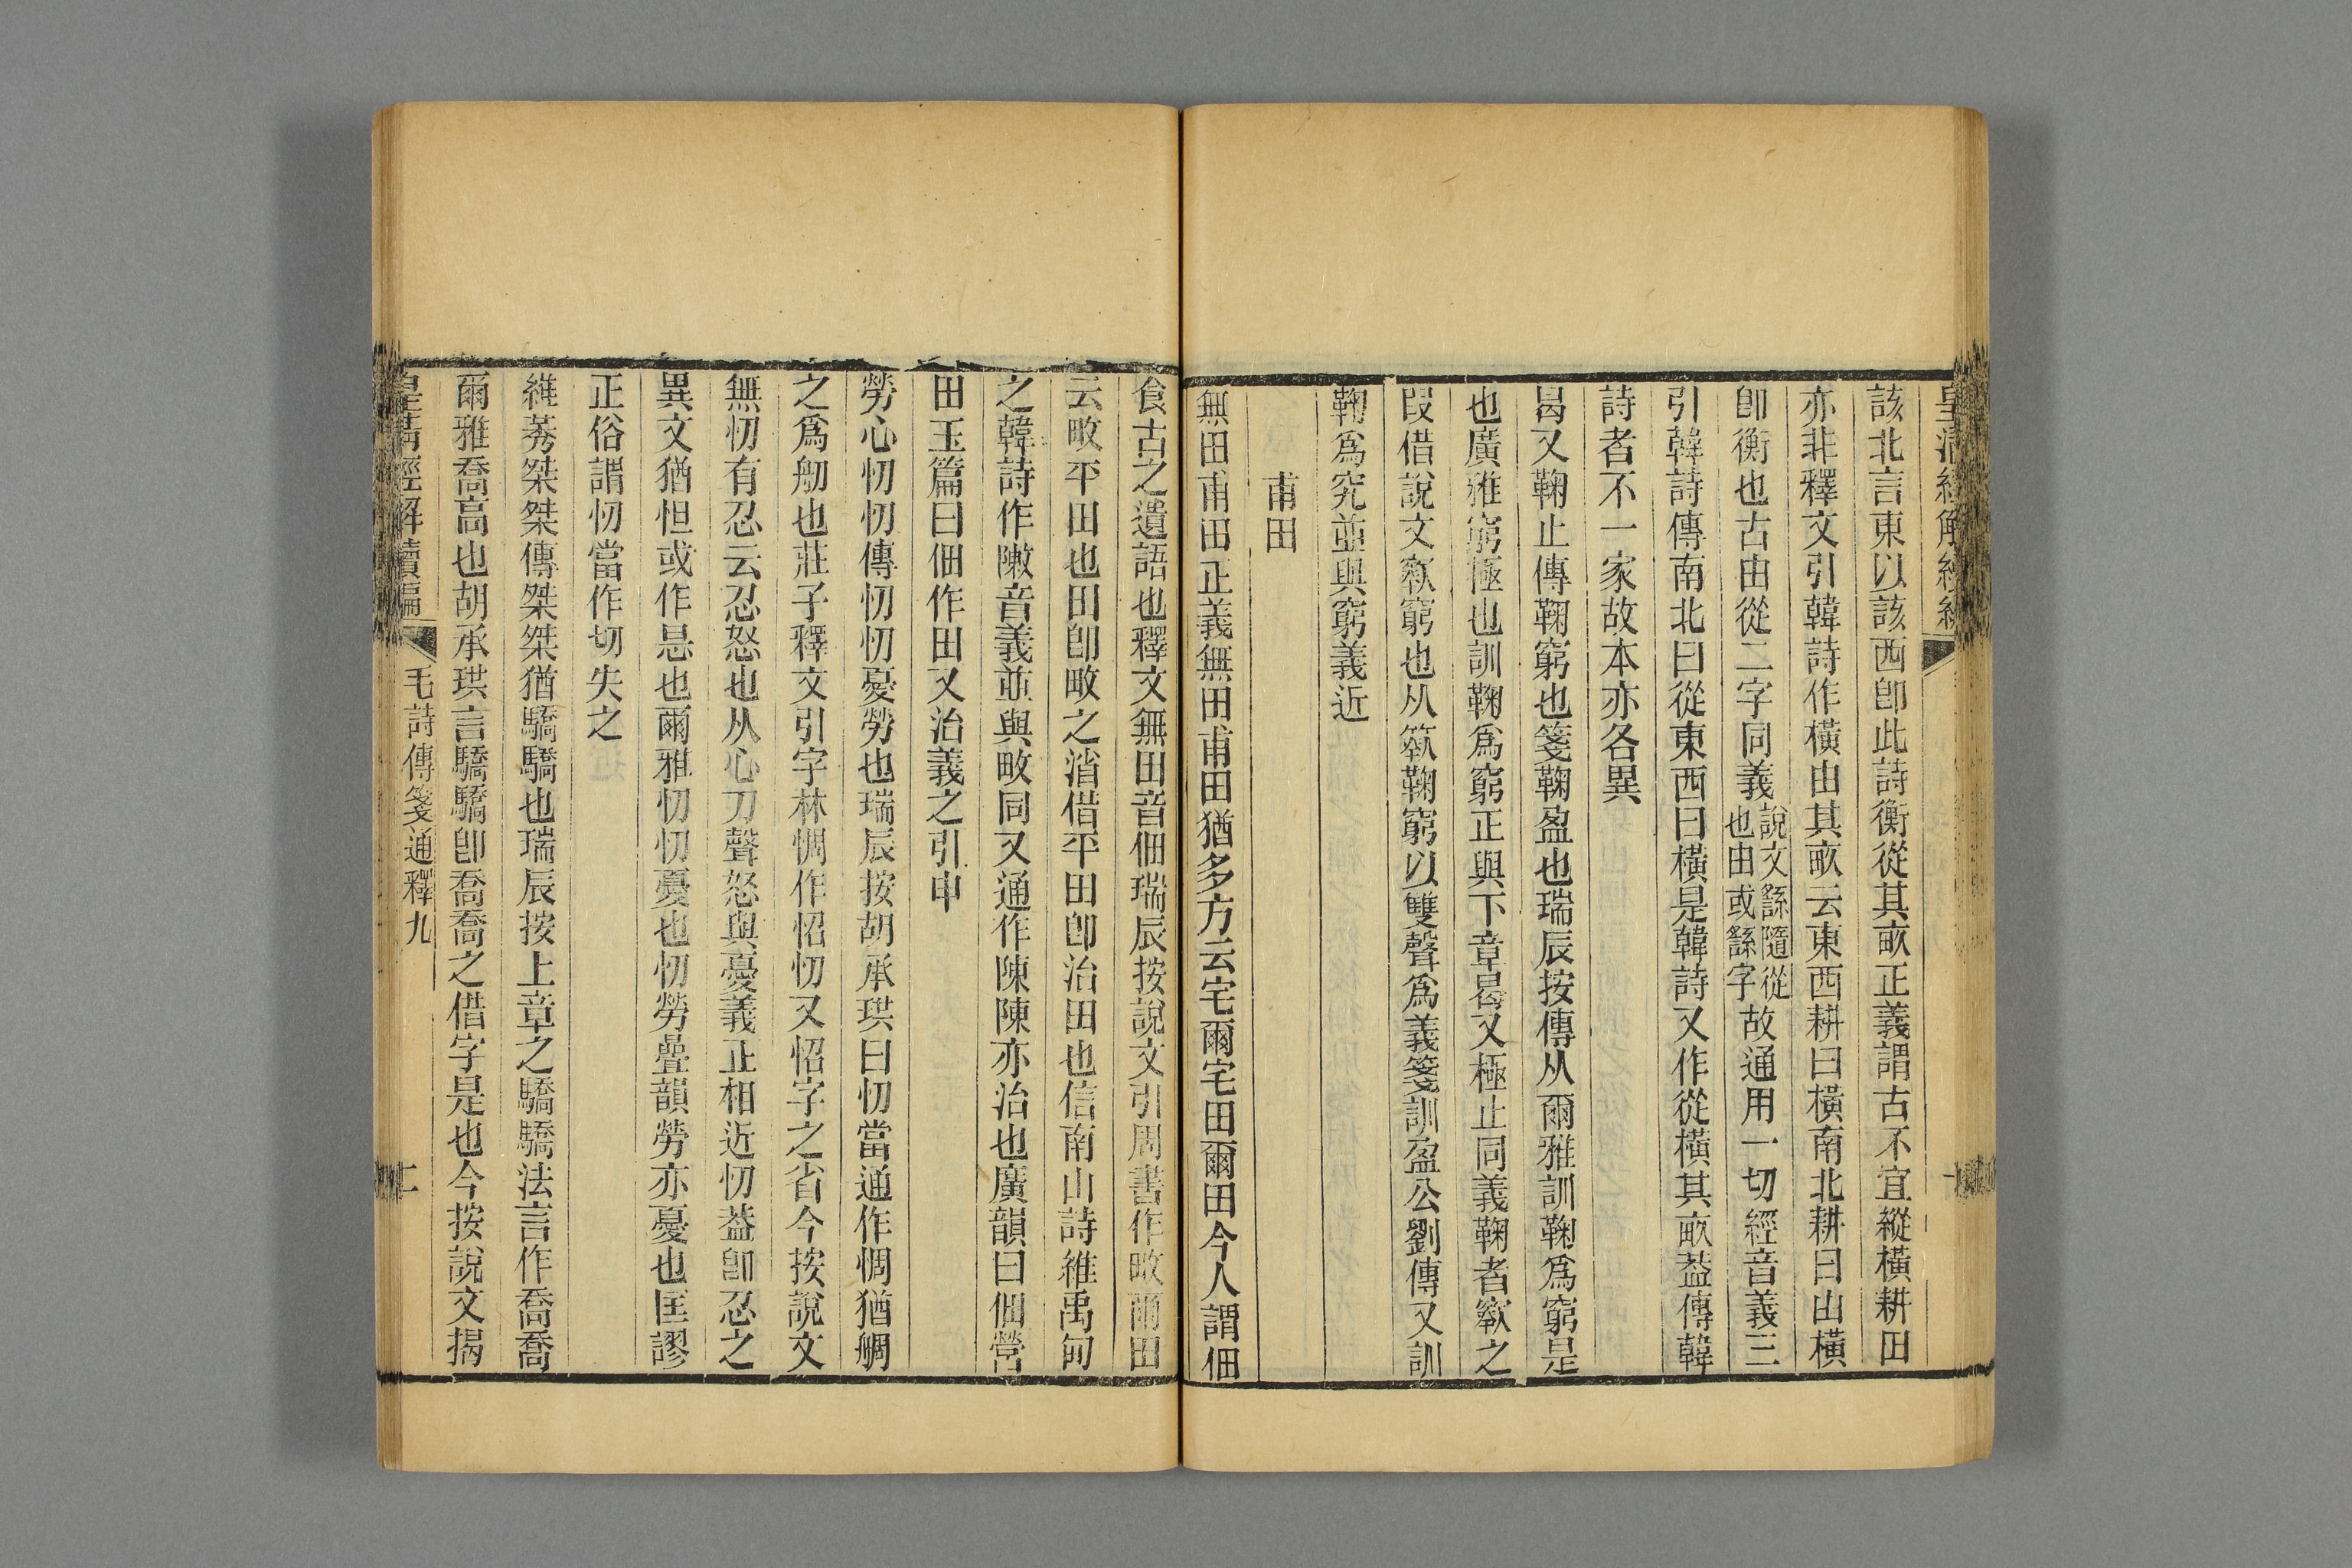 皇清經解續編
該北言東以該西卽此詩衡從其畝正義謂古不宜縱橫耕田
亦非釋文引韓詩作橫由其畝云東西耕曰橫南北耕曰由橫
卽衡也古由從二字同義說文繇隨從也由或繇字故通用一切經音義三
引韓詩傳南北曰從東西曰橫是韓詩又作從橫其畝葢傳韓
詩者不一家故本亦各異
曷又鞠止傳鞠窮也箋鞠盈也瑞辰按傳从爾雅訓鞠爲窮是
也廣雅窮極也訓鞠爲窮正與下章曷又極止同義鞠者䉤之
叚借說文䉤窮也从𥷚鞠窮以雙聲爲義箋訓盈公劉傳又訓
鞠爲究並與窮義近
甫田
無田甫田正義無田甫田猶多方云宅爾宅田爾田今人謂佃
食古之遺語也釋文無田音佃瑞辰按說文引周書作畋爾田
云畋平田也田卽畋之消借平田卽治田也信南山詩維禹甸
之韓詩作敶音義並與畋同又通作陳陳亦治也廣韻曰佃營
田玉篇曰佃作田又治義之引申
勞心忉忉傳忉忉憂勞也瑞辰按胡承珙曰忉當通作惆猶鯛
之爲舠也莊子釋文引字林惆作怊忉又怊字之省今按說文
無忉有忍云忍怒也从心刀聲怒與憂義正相近忉葢卽忍之
異文猶怛或作悬也爾雅忉忉憂也忉勞疊韻勞亦憂也匡謬
正俗謂忉當作切失之
維莠桀桀傳桀桀猶驕驕也瑞辰按上章之驕驕法言作喬喬
爾雅喬高也胡承珙言驕驕卽喬喬之借字是也今按說文揭
皇清經解續編 毛詩傳箋通釋九